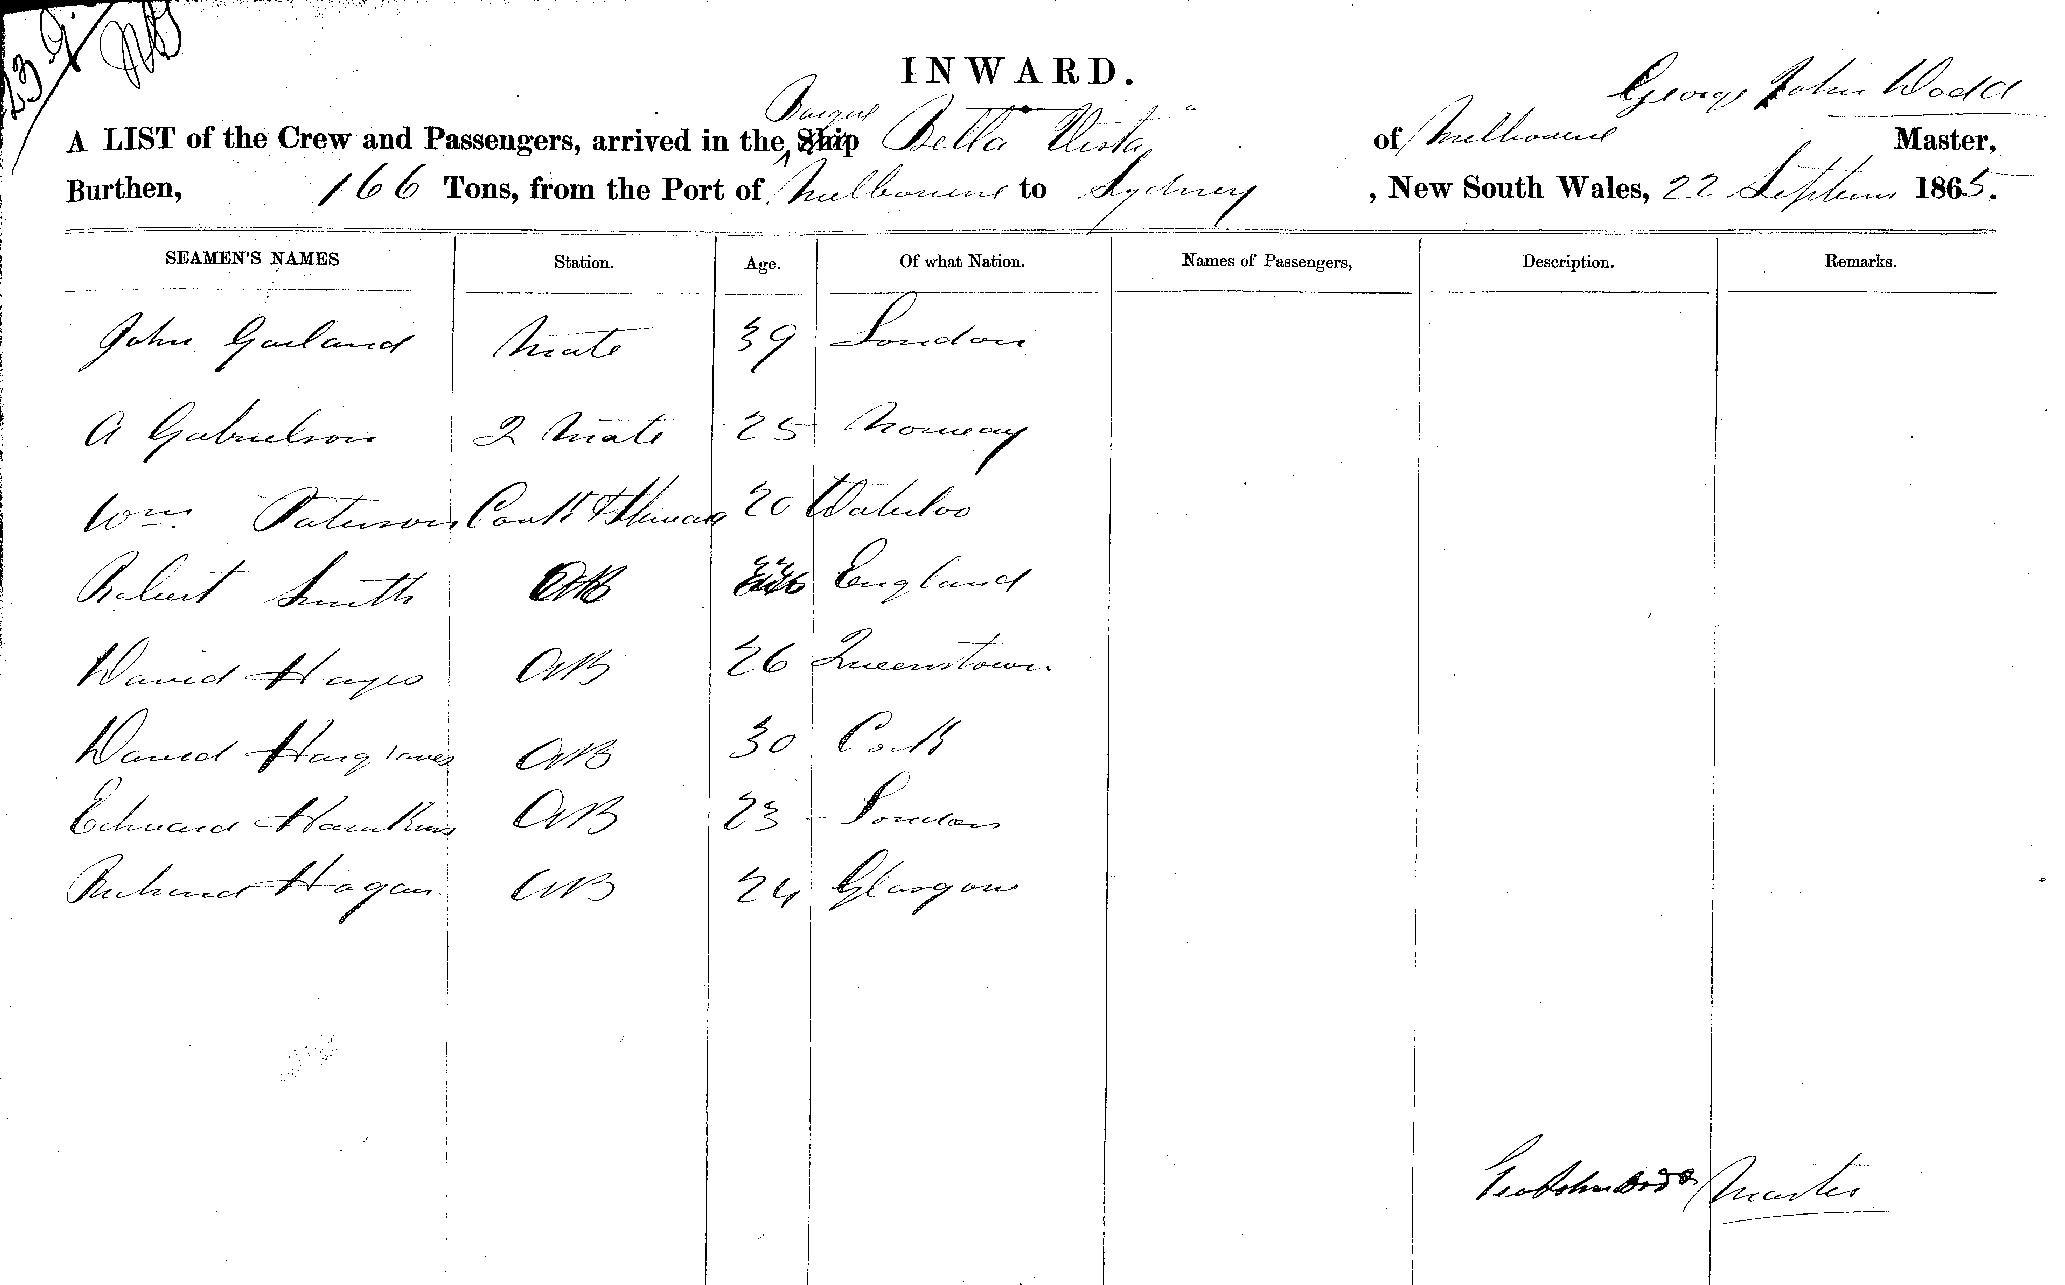 INWARD.
George John Dodd
A LIST of the Crew and Passengers, arrived in the Ship Bella Vista of Melbourne Master,
Burthen, 166 Tons, from the Port of Melbourne to Sydney, New South Wales, 22 Septem 1865.
SEAMEN'S NAMES Station. Age. Of what Nation. Names of Passengers, Description. Remarks.
John Garland Mate 39 London
A Gabrielson 2 Mate 25 Norway
Wm Paterson Cook & Steward 20 Waterloo
Robert Smith AB England
David Hayes AB 26 Queenstown
David Hargraves AB 30 Cork
Edward Hawkins AB 23 London
Richard Hogan AB 24 Glasgow
Geo John Dodd Master